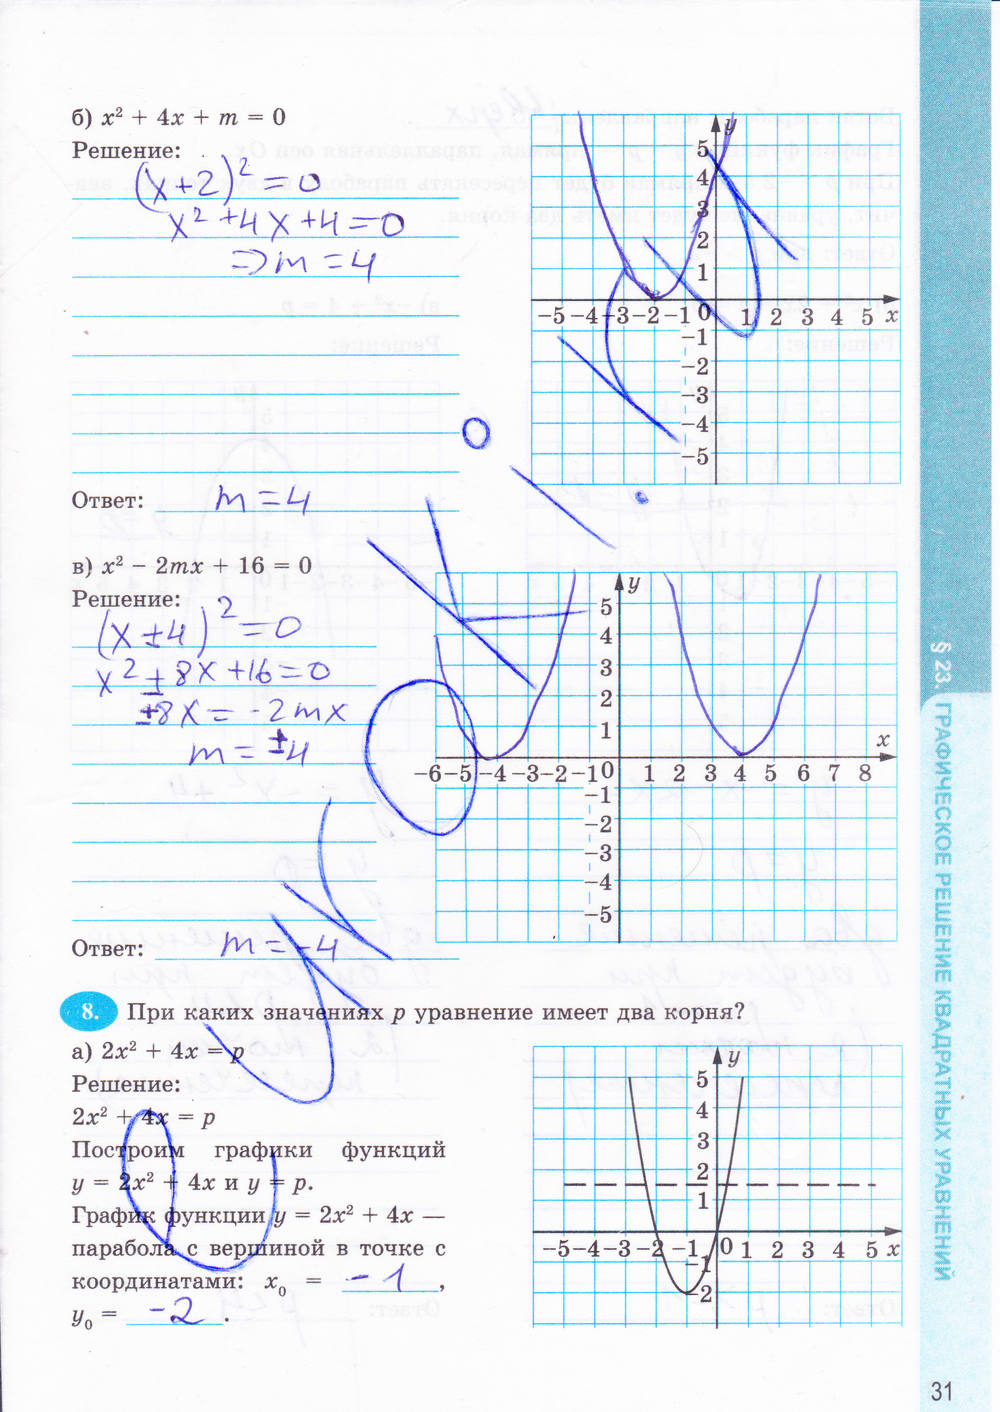 б) x² + 4x + m = 0
Решение:
(x+2)² = 0
x² + 4x + 4 = 0
=> m = 4
Ответ: m = 4
y
5
4
3
2
1
-5 -4 -3 -2 -1 0 1 2 3 4 5 x
-1
-2
-3
-4
-5
в) x² − 2mx + 16 = 0
Решение:
(x ± 4)² = 0
x² ± 8x + 16 = 0
±8x = -2mx
m = ±4
Ответ: m = -4
y
5
4
3
2
1
x
-6 -5 -4 -3 -2 -1 0 1 2 3 4 5 6 7 8
-1
-2
-3
-4
-5
8. При каких значениях p уравнение имеет два корня?
а) 2x² + 4x = p
Решение:
2x² + 4x = p
Построим графики функций
y = 2x² + 4x и y = p.
График функции y = 2x² + 4x —
парабола с вершиной в точке с
координатами: x₀ = -1,
y₀ = -2.
y
5
4
3
2
1
-5 -4 -3 -2 -1 0 1 2 3 4 5 x
-1
-2
§ 23. ГРАФИЧЕСКОЕ РЕШЕНИЕ КВАДРАТНЫХ УРАВНЕНИЙ
31